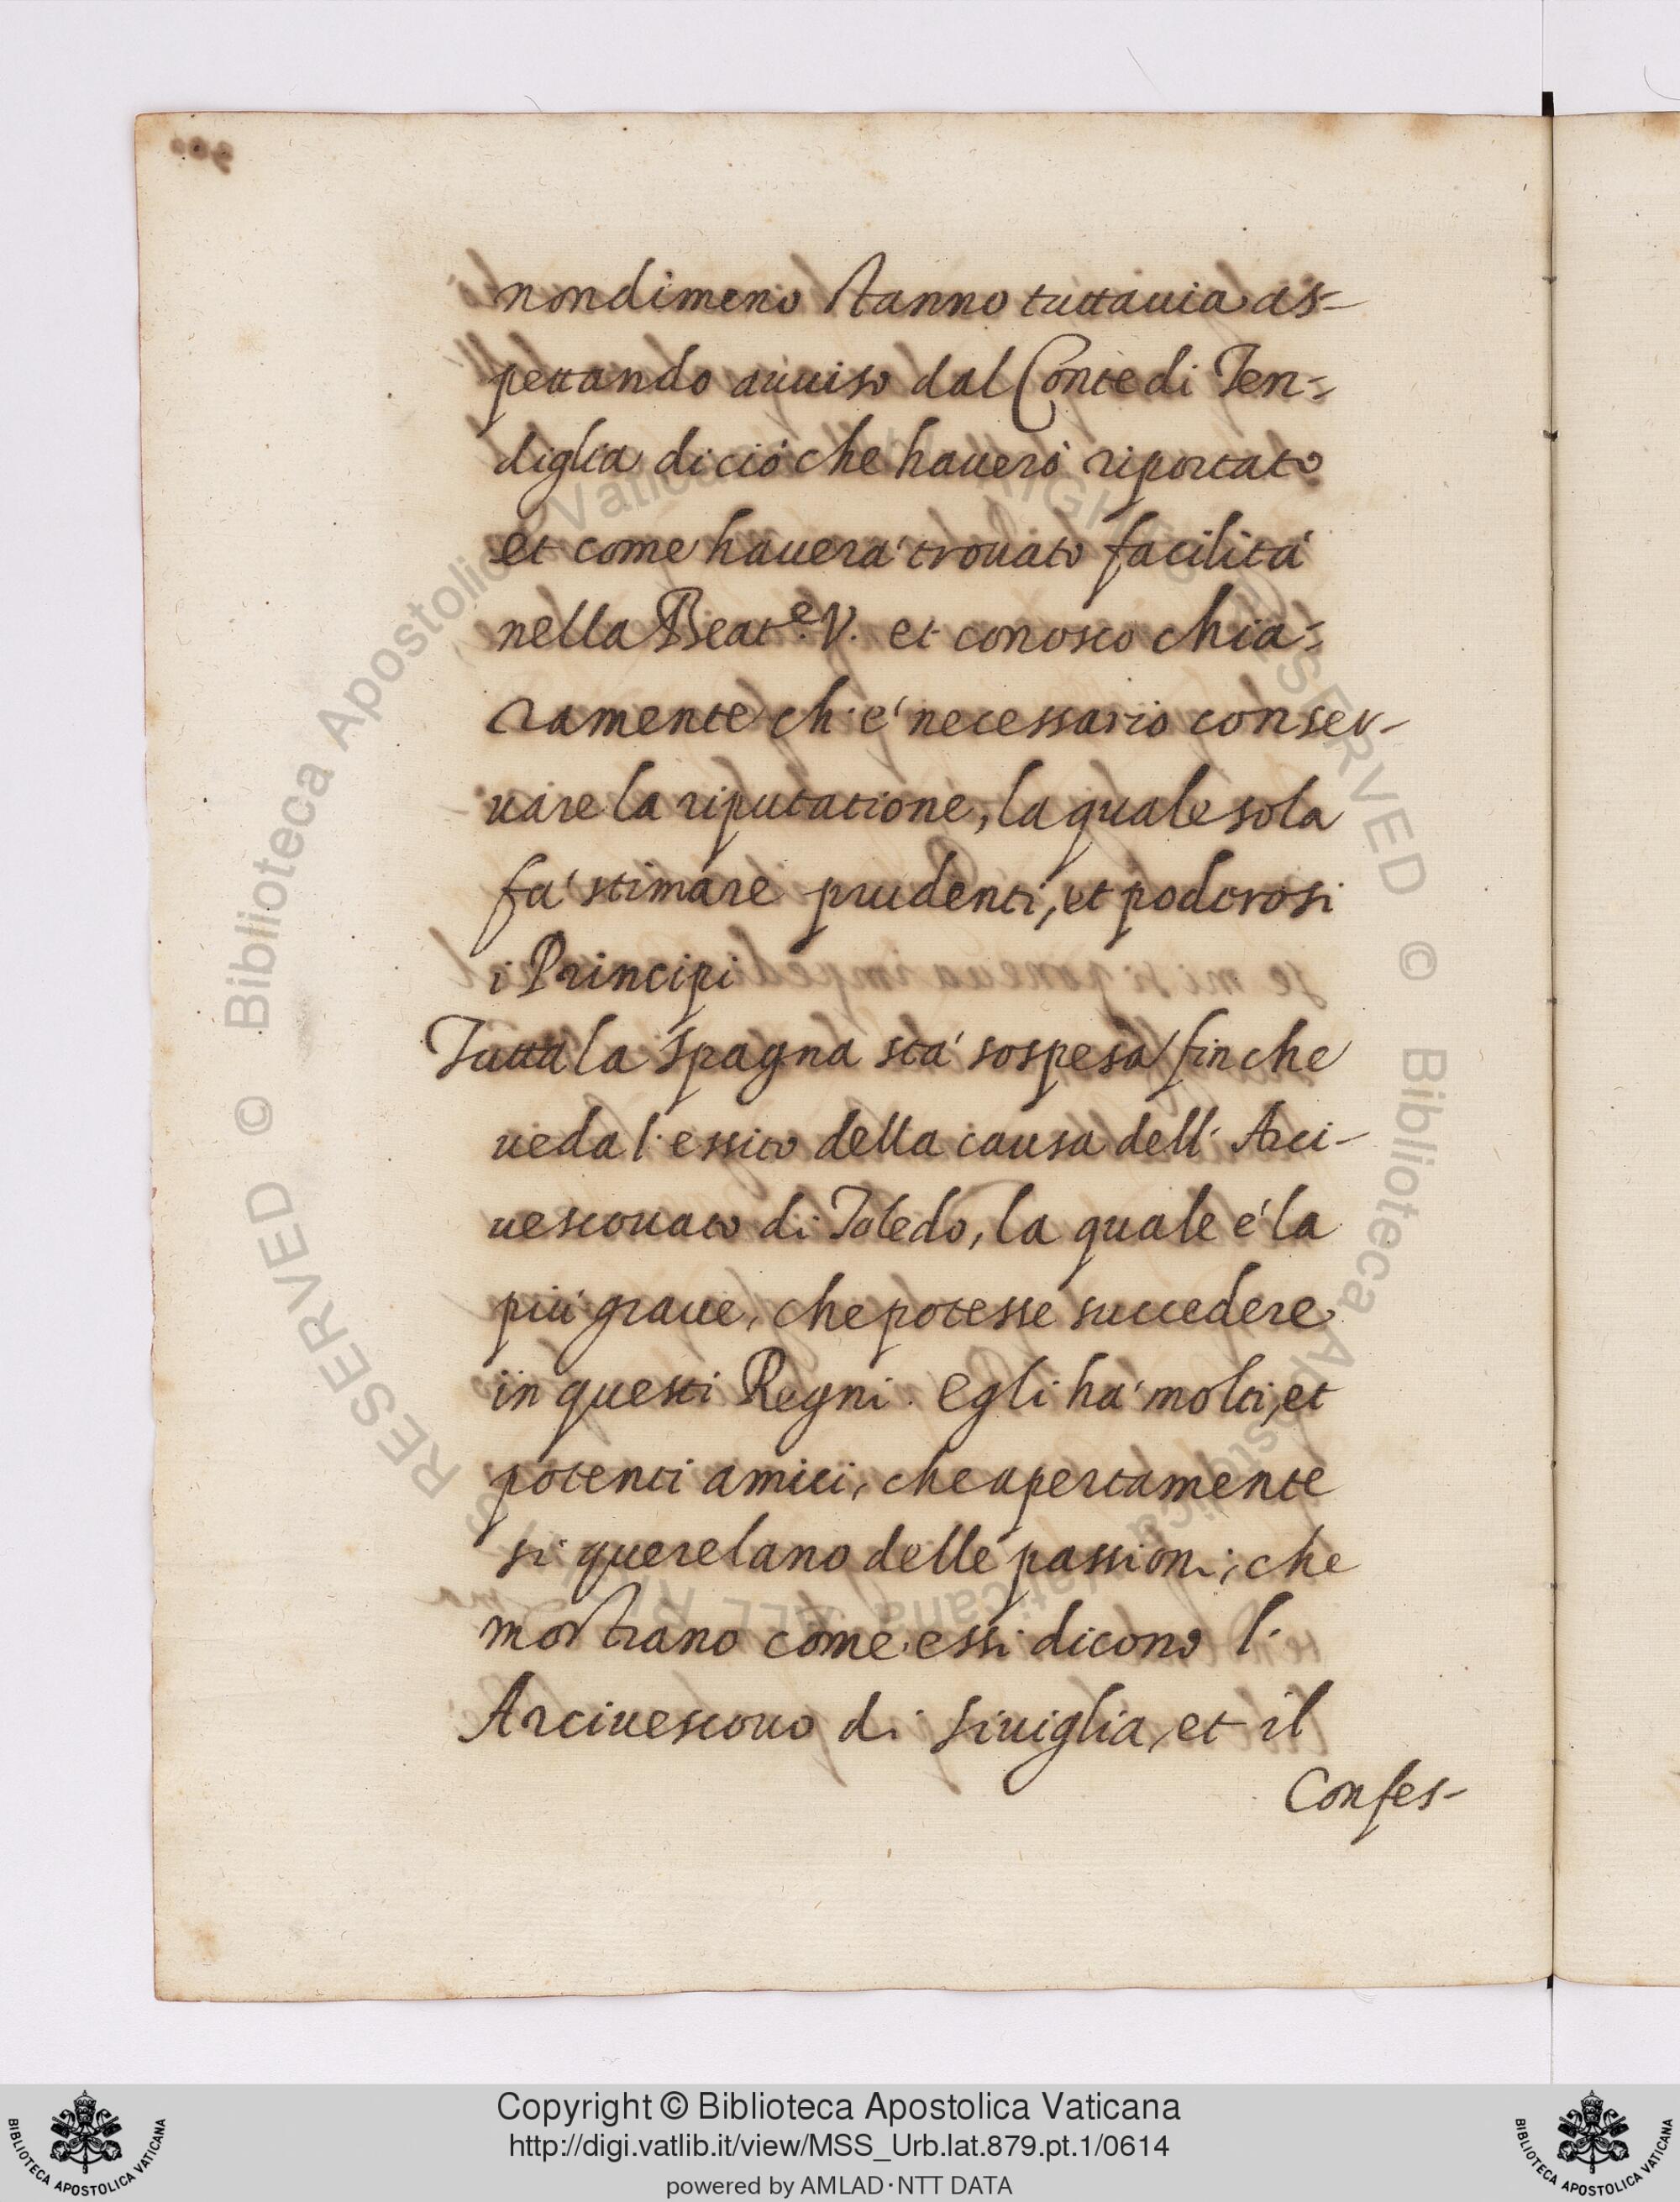 nondimeno stanno tuttauia as-
pettando auuiso dal Conte di Ten-
diglia di ciò che hauerà riportato
et come hauerà trouato facilità
nella Beat.e V. et conosco chia-
ramente ch'è necessario conser-
uare la riputatione, la quale sola
fà stimare prudenti, et poderosi
i Principi
Tutta la Spagna stà sospesa finche
ueda l'essito della causa dell'Arci-
uescouato di Toledo, la quale è la
più graue, che potesse succedere
in questi Regni. Egli hà molti, et
potenti amici, che apertamente
si querelano delle passioni, che
mostrano come essi dicono l'
Arciuescouo di Siuiglia, et il
Confes-
© Biblioteca Apostolica Vaticana ALL RIGHTS RESERVED
Copyright © Biblioteca Apostolica Vaticana
http://digi.vatlib.it/view/MSS_Urb.lat.879.pt.1/0614
powered by AMLAD·NTT DATA
BIBLIOTECA APOSTOLICA VATICANA
BIBLIOTECA APOSTOLICA VATICANA